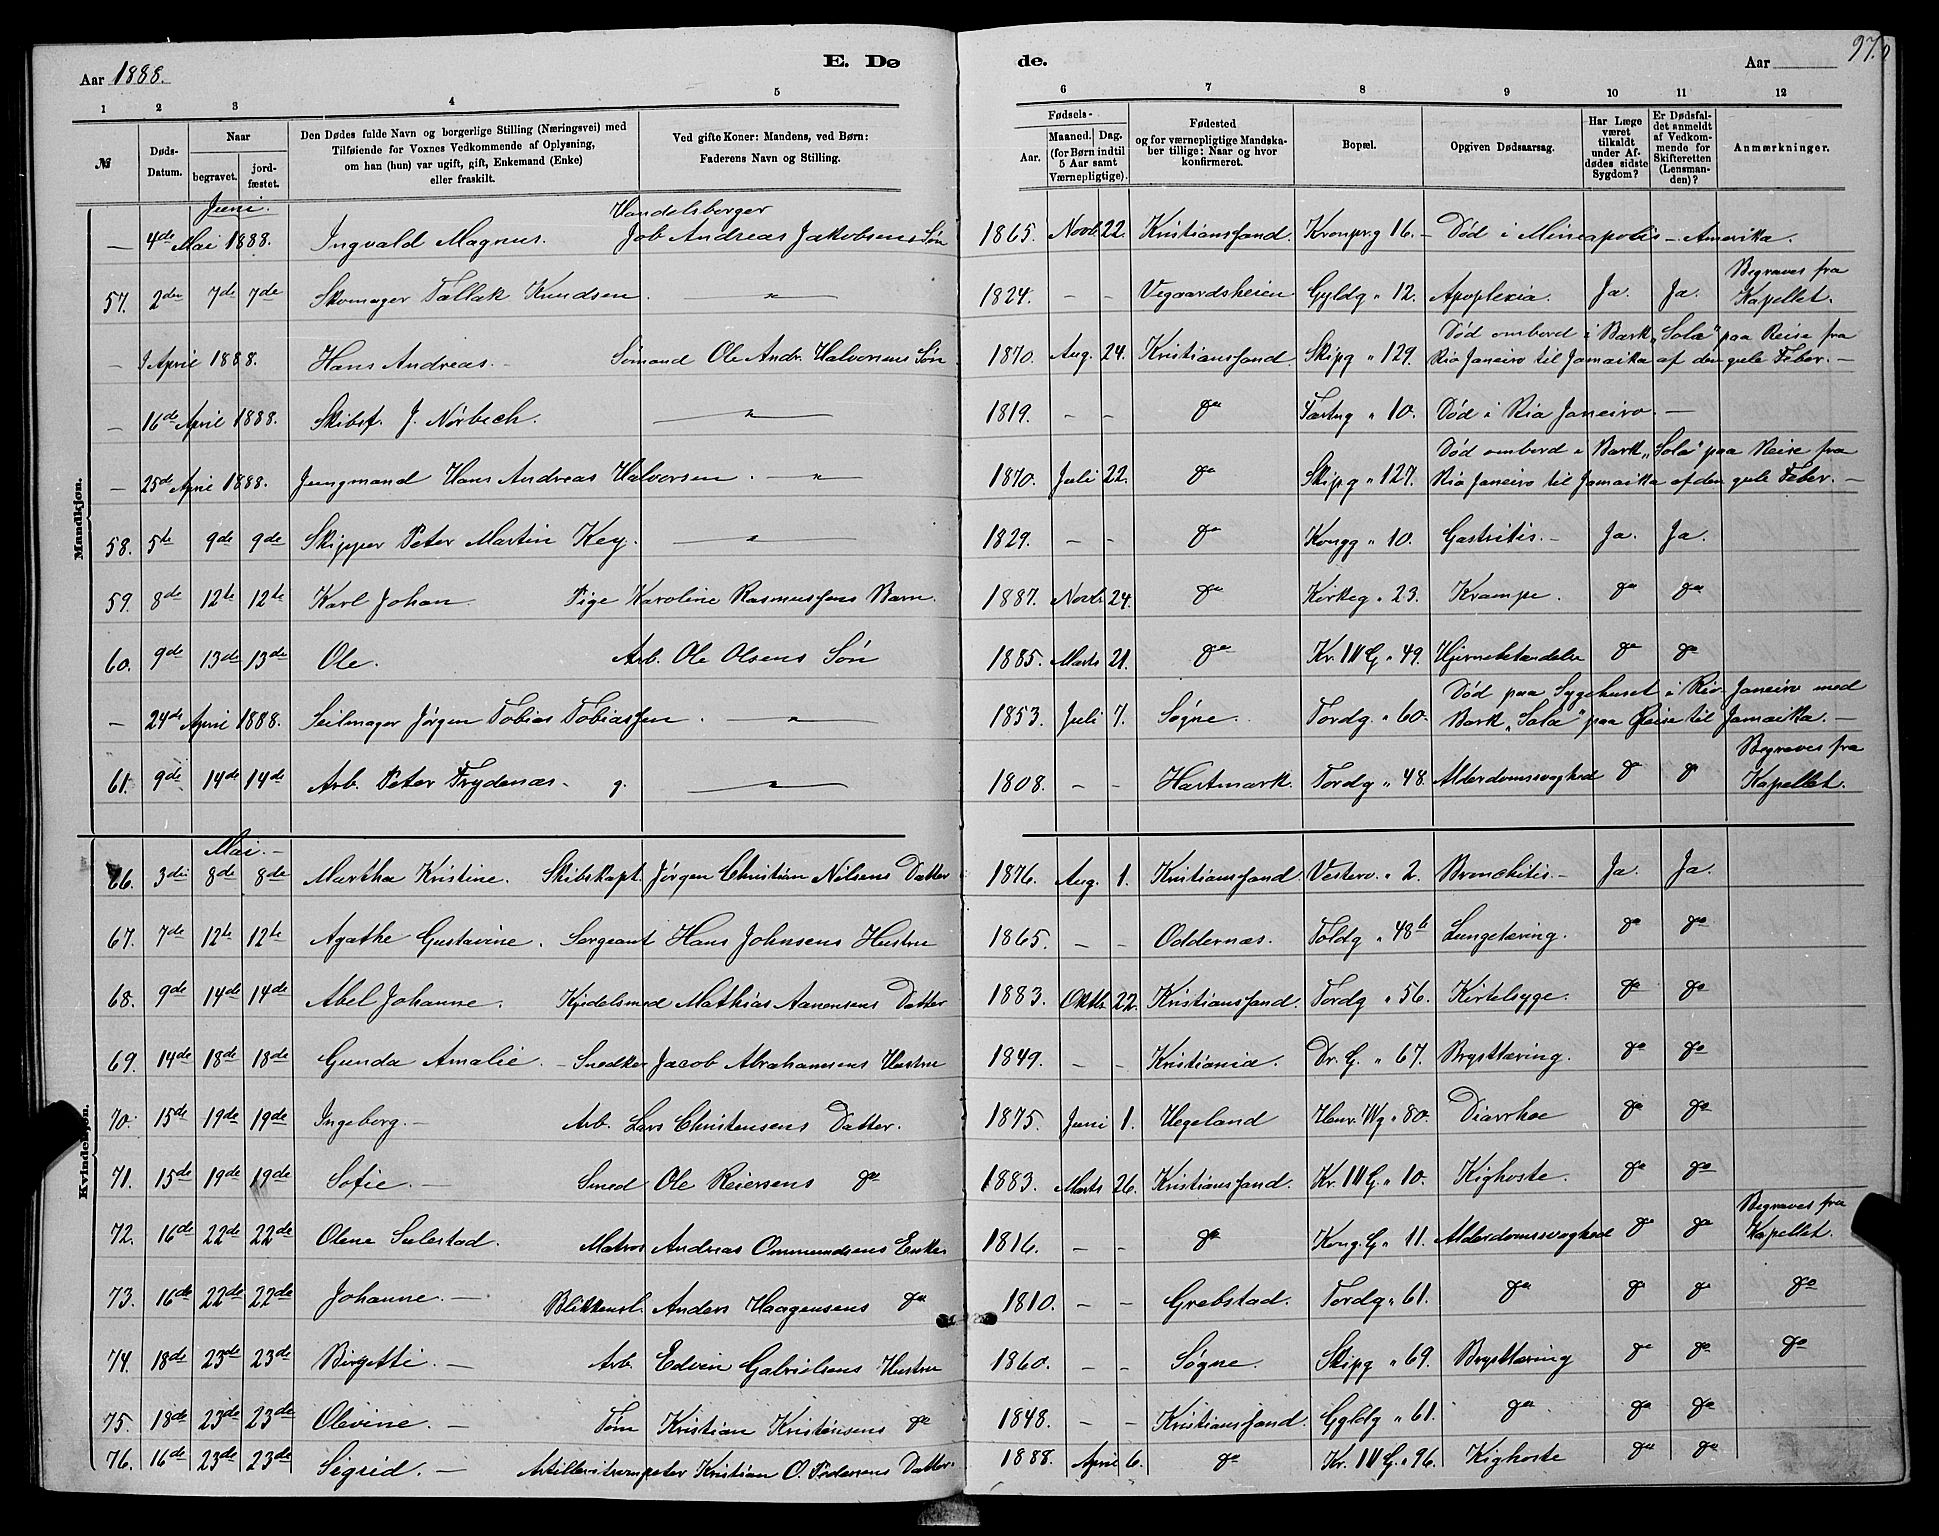 Aar 1888. E. Dø de. Aar 97.
1 2 3 4 5 6 7 8 9 10 11 12
№ Døds-Datum. Naar begravet. jordfæstet. Den Dødes fulde Navn og borgerlige Stilling (Næringsvei) med Tilføiende for Voxnes Vedkommende af Oplysning, om han (hun) var ugift, gift, Enkemand (Enke) eller fraskilt. Ved gifte Koner: Mandens, ved Børn: Faderens Navn og Stilling. Fødsels- Aar. Maaned. Dag. (for Børn indtil 5 Aar samt Værnepligtige). Fødested og for værnepligtige Mandskaber tillige: Naar og hvor konfirmeret. Bopæl. Opgiven Dødsaarsag. Har Læge været tilkaldt under Afdødes sidste Sygdom? Er Dødsfaldet anmeldt af Vedkommende for Skifteretten (Lensmanden)? Anmærkninger.
Mandkjøn.
Juni. Handelsborger
— 4de Mai 1888. Ingvald Magnus. Job Andreas Jakobsens Søn 1865. Novb. 22. Kristianssand. Kronpr.g 16. — Død i Mineapolis — Amerika.
Begraves fra
57. 2den 7de 7de Skomager Tallak Knudsen. — " — 1824. — — Vegaardsheien Gyldg " 12. Apoplexia. Ja. Ja. Kapellet.
Død ombord i Bark „Sola" paa Reise fra
— 9 April 1888. Hans Andreas. — Sømand Ole Andr. Halvorsens Søn 1870. Aug. 24. Kristianssand Skipg " 129. Rio Janeiro til Jamaika af den gule Feber. —
— 16de April 1888. Skibsf. J. Nørbech. — " — 1819. — — do " 10. Død i Rio Janeiro. —
Død ombord i Bark „Sola" paa Reise fra
— 25de April 1888. Jungmand Hans Andreas Halvorsen. — " — 1870. Juli 22. do Skipg " 127. Rio Janeiro til Jamaika af den gule Feber. —
58. 5te 9de 9de Skipper Peter Martin Key. — " — 1829. — — do Kongg " 10. Gastritis. — Ja. Ja.
59. 8de 12te 12te Karl Johan. Pige Karoline Rasmussens Barn. 1887. Novb. 24. do Kirkeg " 23. Krampe. do do
60. 9de 13de 13de Ole. Arb. Ole Olsens Søn 1885. Marts 21. do Kr. IV G. " 49. Hjernebetændelse do do
Død paa Sygehuset i Rio Janeiro med
— 24de April 1888. Seilmager Jørgen Tobias Tobiassen. — " — 1853. Juli 7. Søgne. Tordg " 60. Bark „Sola" paa Reise til Jamaika. —
Begraves fra
61. 9de 14de 14de Arb. Peter Frydenæs. g. — " — 1808. — — Hartmark. Tordg " 48. Alderdomssvaghed do do Kapellet.
Kvindekjøn.
Mai. —
66. 3die 8de 8de Martha Kristine. Skibskapt. Jørgen Christian Nilsens Datter 1876. Aug. 1. Kristianssand. Vesterv. " 2. Bronchitis. — Ja. Ja.
67. 7de 12te 12te Agathe Gustavine. Sergeant Hans Johnsens Hustru 1865. — — Oddernæs. Toldg " 48b Lungetæring. do do
68. 9de 14de 14de Abel Johanne. Kjedelsmed Mathias Aanensens Datter 1883. Oktb. 22. Kristianssand. Tordg " 56. Kirtelsyge. do do
69. 14de 18de 18de Gunda Amalie. — Snedker Jacob Abrahamsens Hustru 1849. — — Kristiania. Dr. G. " 67. Brysttæring. do do
70. 15de 19de 19de Ingeborg. — Arb. Lars Christensens Datter. 1875. Juni 1. Hegeland Henr. Wg " 80. Diarrhoe do do
71. 15de 19de 19de Sofie. — Smed Ole Reiersens do 1883. Marts 26. Kristianssand. Kr. IV G. " 10. Kighoste. do do
Begraves fra
72. 16de 22de 22de Olene Sulestad. Matros Andreas Ommundsens Enke 1816. — — do Kong. G. " 11. Alderdomssvaghed do do Kapellet.
73. 16de 22de 22de Johanne. — Blikkensl. Anders Haagensens do 1810. — — Grebstad. Tordg " 61. do do do do
74. 18de 23de 23de Birgette. — Arb. Edvin Gabrielsens Hustru 1860. — — Søgne. Skipg " 69. Brysttæring do do do
75. 18de 23de 23de Olevine. — Tøm Kristian Kristensens do 1848. — — Kristianssand. Gyldg " 61. do do do
76. 16de 23de 23de Sigrid. — Artilleritrompeter Kristian O. Pedersens Datter. 1888. April 6. do Kr. IV G. " 96. Kighoste do do